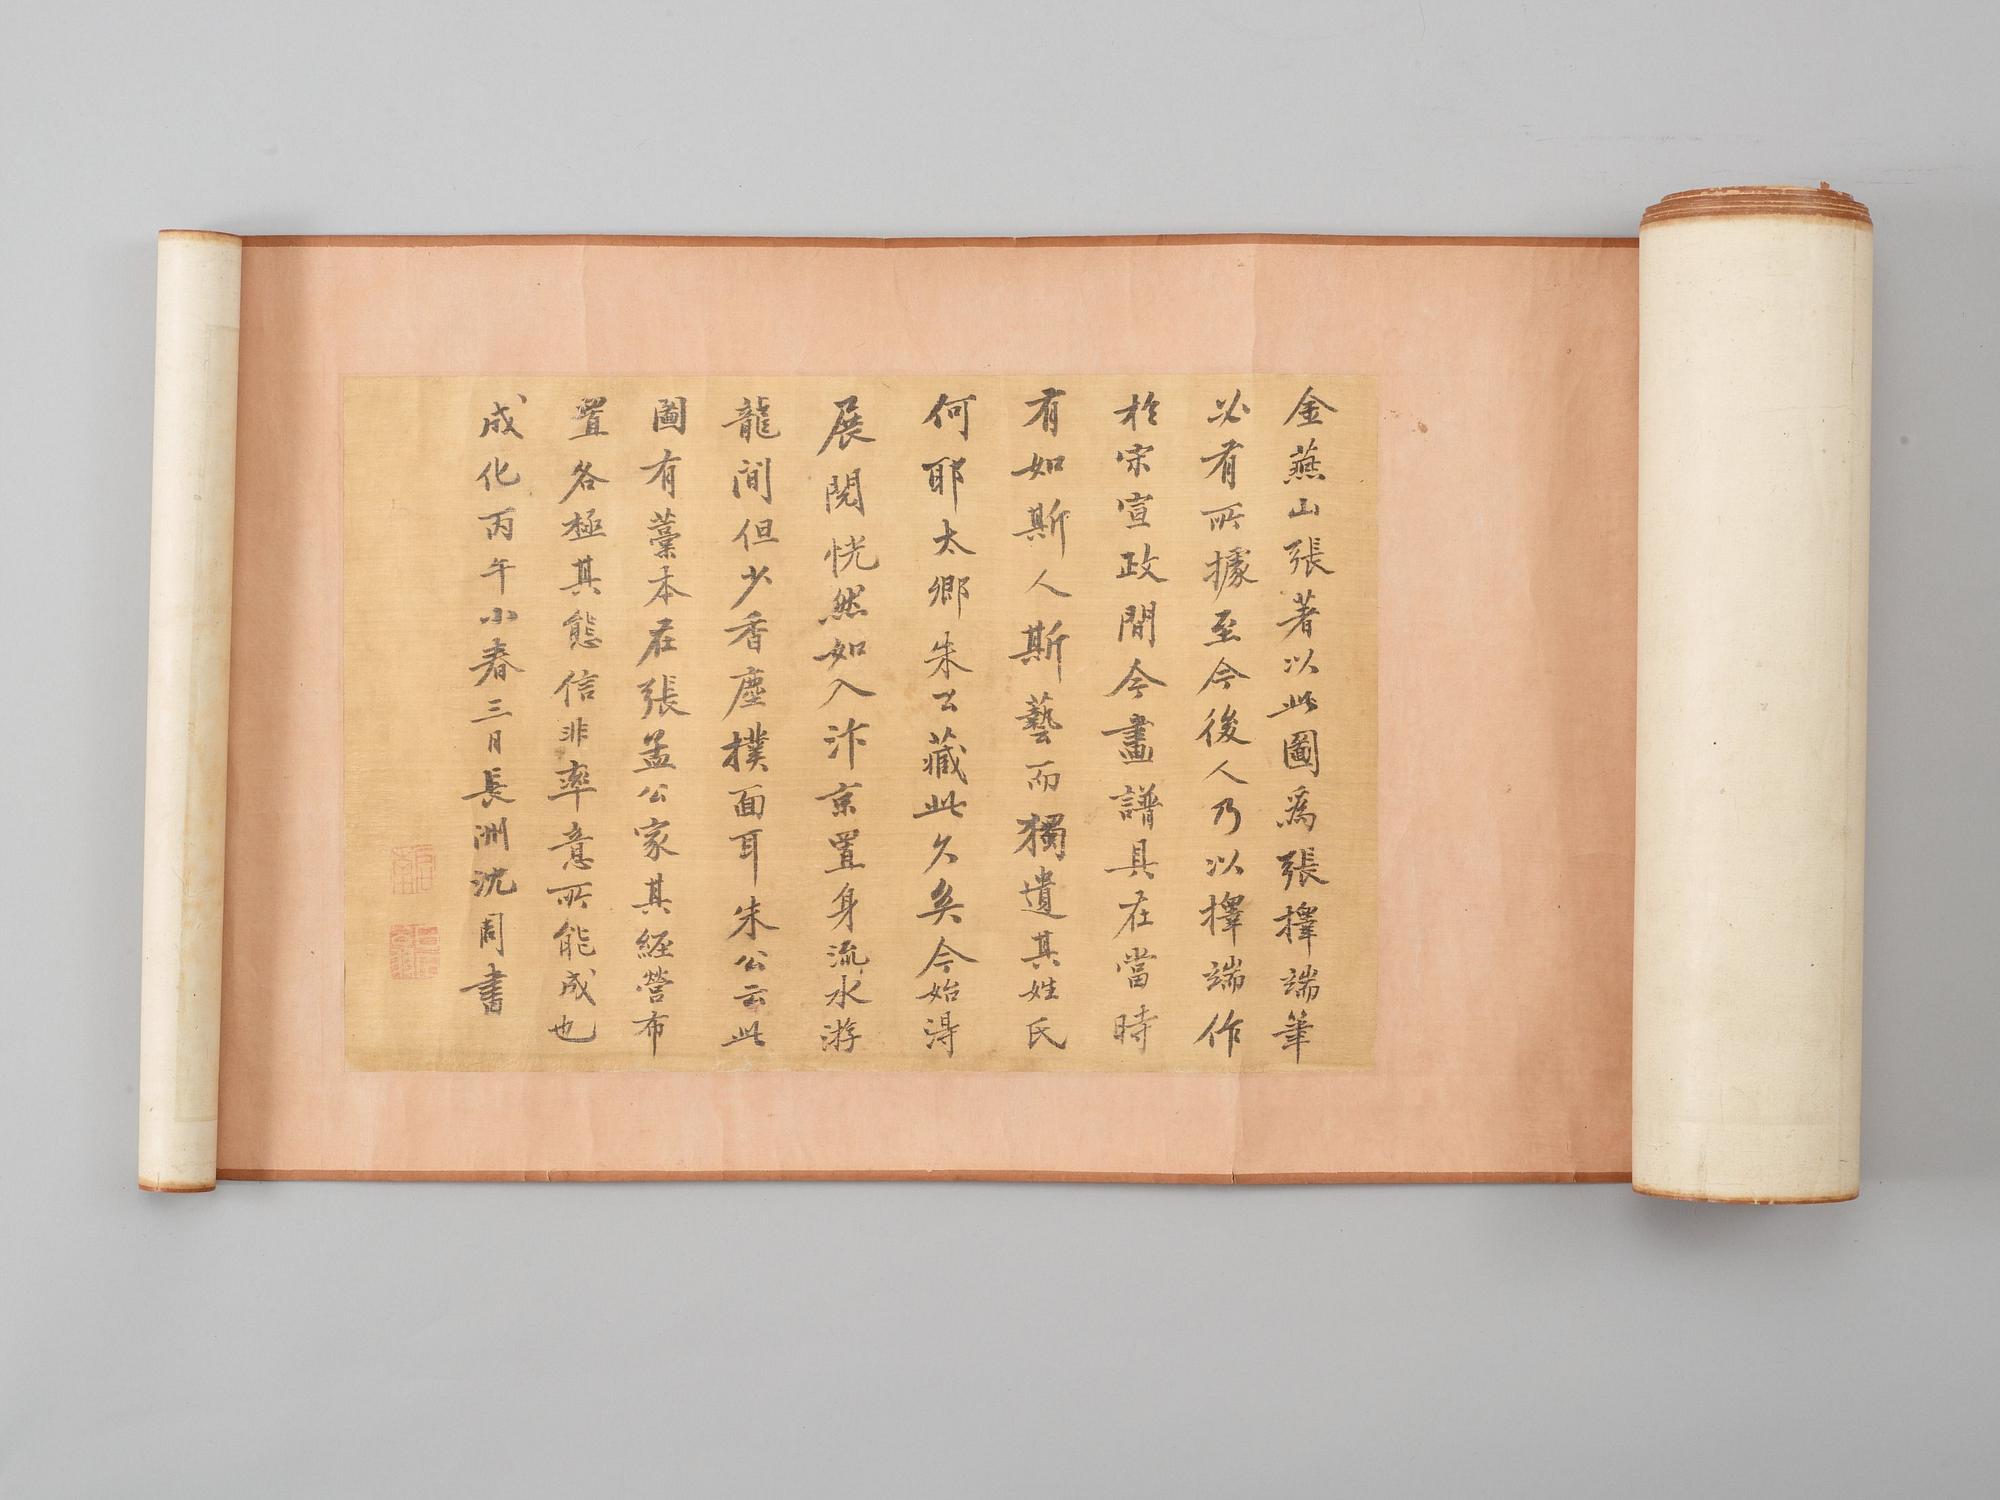 金燕山張著以此圖爲張擇端筆
必有所據至今後人乃以擇端作
於宋宣政間今畫譜具在當時
有如斯人斯藝而獨遺其姓氏
何耶太卿朱公藏此久矣今始得
展閱恍然如入汴京置身流水游
龍間但少香塵撲面耳朱公云此
圖有藁本在張孟公家其經營布
置各極其態信非率意所能成也
成化丙午小春三月長洲沈周書